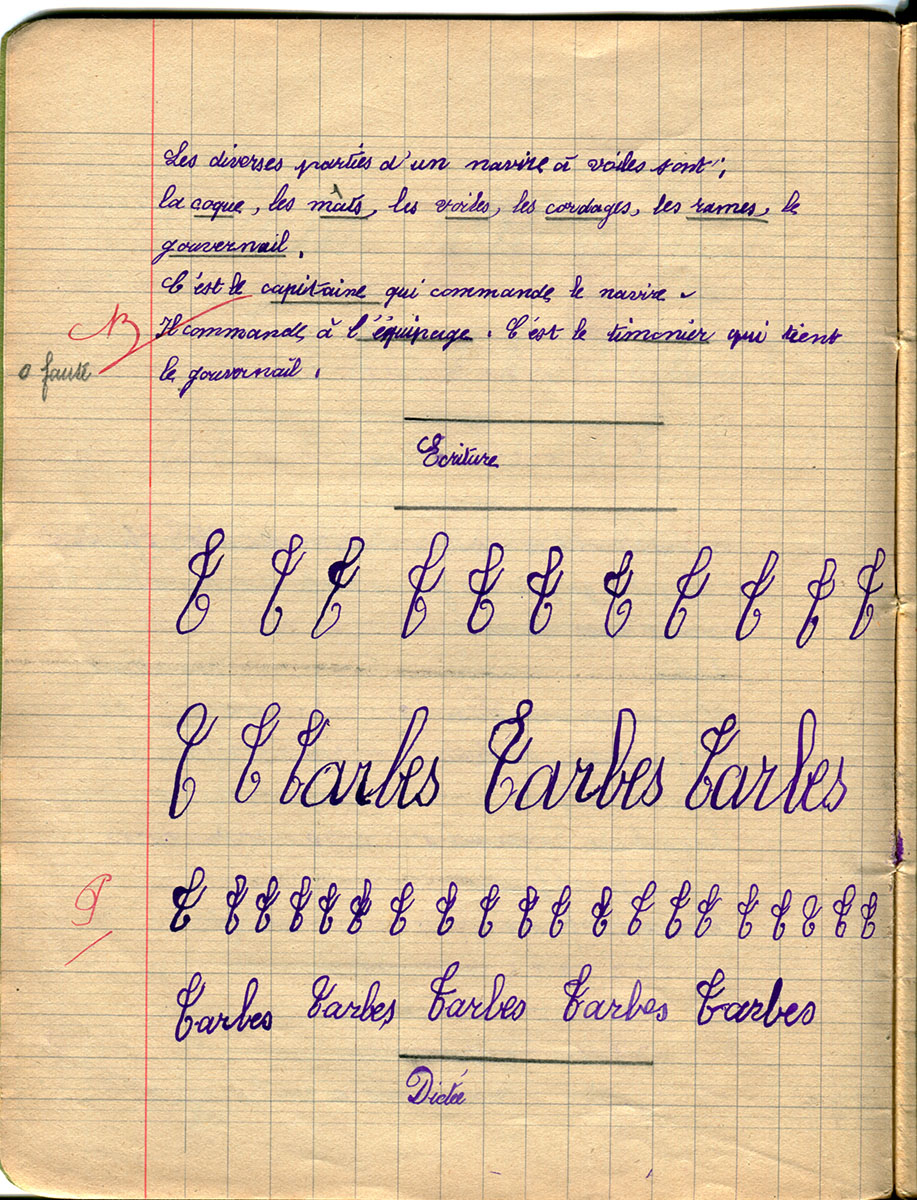 Les diverses parties d'un navire à voiles sont :
la coque, les mâts, les voiles, les cordages, les rames, le
gouvernail.
C'est le capitaine qui commande le navire.
B
Il commande à l'équipage. C'est le timonier qui tient
0 faute
le gouvernail.
Ecriture
T T T T T T T T T T T
T T Tarbes Tarbes Tarbes
T T T T T T T T T T T T T T T T T T T T
Tarbes Tarbes Tarbes Tarbes Tarbes
Dictée